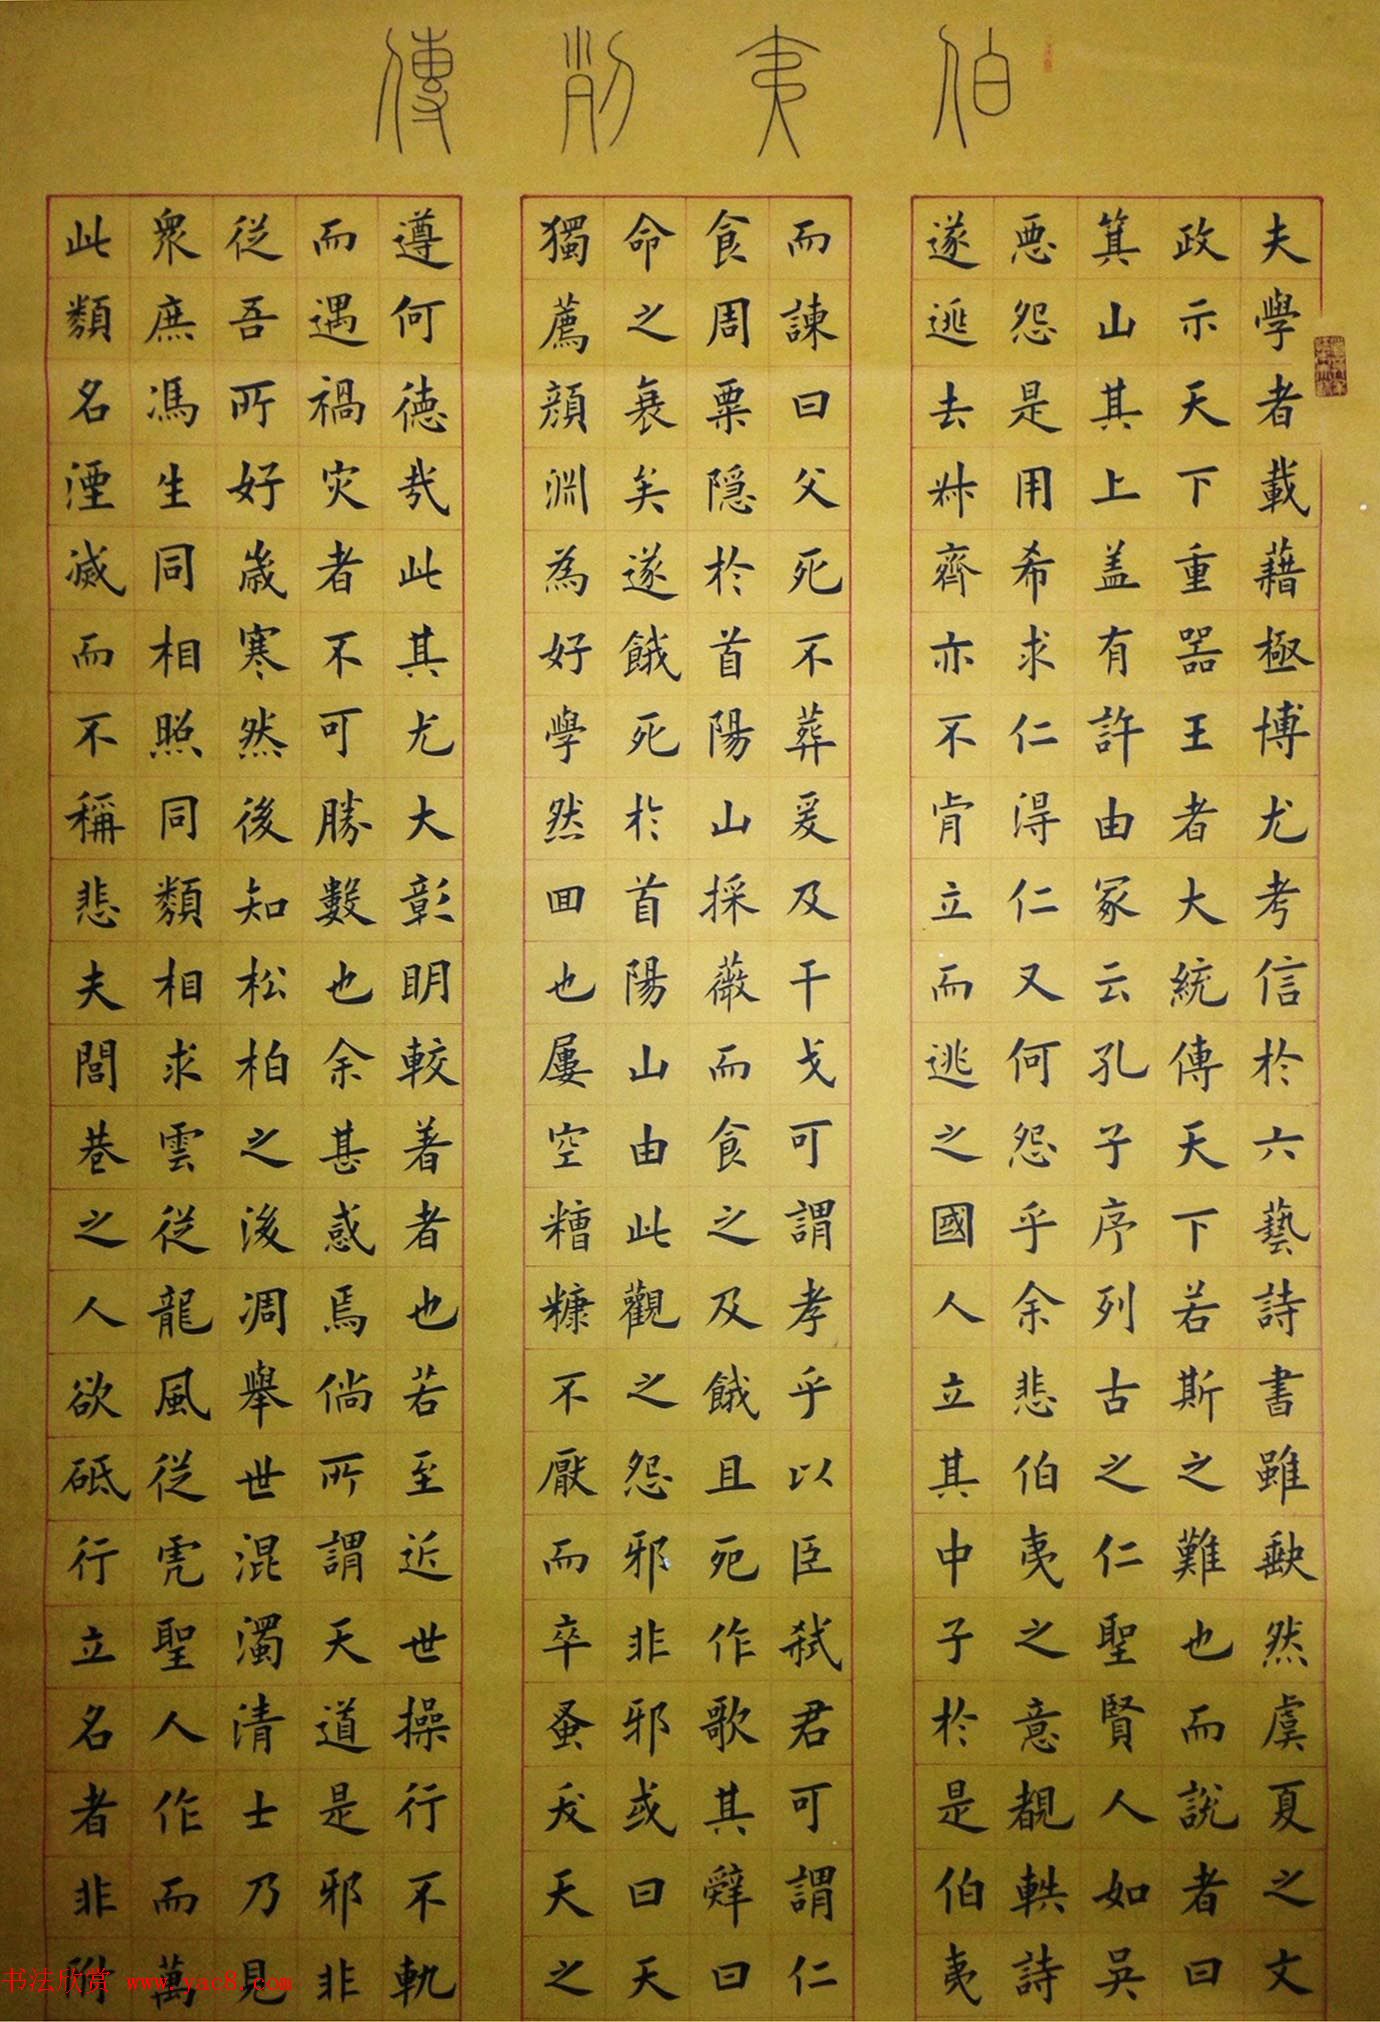 伯夷列傳
夫學者載藉極博尤考信於六藝詩書雖缺然虞夏之文
政示天下重器王者大統傳天下若斯之難也而說者曰
箕山其上盖有許由冢云孔子序列古之仁聖賢人如吳
惡怨是用希求仁得仁又何怨乎余悲伯夷之意覩軼詩
遂逃去叔齊亦不肯立而逃之國人立其中子於是伯夷
而諫曰父死不葬爰及干戈可謂孝乎以臣弒君可謂仁
食周粟隱於首陽山採薇而食之及餓且死作歌其辭曰
命之衰矣遂餓死於首陽山由此觀之怨邪非邪或曰天
獨薦顏淵為好學然回也屢空糟糠不厭而卒蚤夭天之
遵何德哉此其尤大彰明較著者也若至近世操行不軌
而遇禍災者不可勝數也余甚惑焉倘所謂天道是邪非
從吾所好歲寒然後知松柏之後凋舉世混濁清士乃見
眾庶馮生同相照同類相求雲從龍風從虎聖人作而萬
此類名湮滅而不稱悲夫閭巷之人欲砥行立名者非附
书法欣赏 www.yac8.com